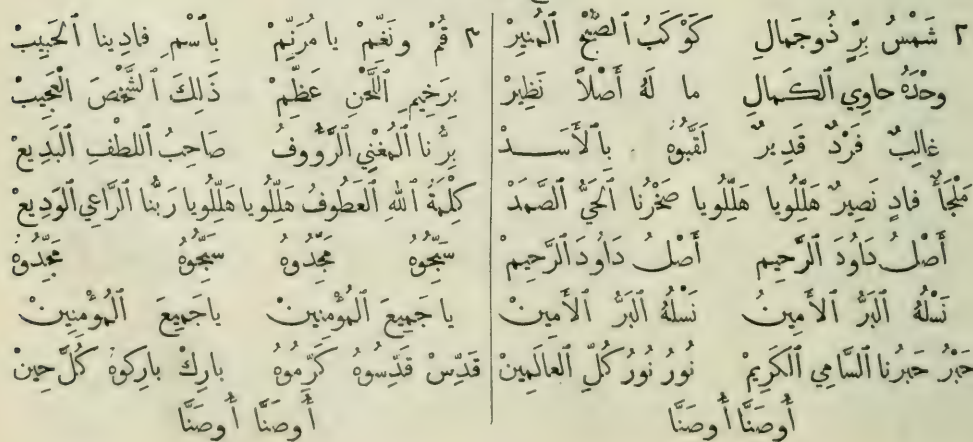 ٢ شَمْسُ بِرٍّ ذُو جَمَالِ كَوْكَبُ ٱلصُّبْحِ ٱلْمُنِيرْ
وَحْدَهُ حاوِي ٱلكَمالِ ما لَهُ أَصْلاً نَظِيرْ
غالِبٌ فَرْدٌ قَدِيرٌ لَقَّبُوهُ بِٱلأَسَدْ
مَلْجَأٌ فادٍ نَصِيرٌ هَلِّلُويا هَلِّلُويا صَخْرُنا ٱلحَيُّ ٱلصَّمَدْ
أَصْلُ دَاوُدَ ٱلرَّحِيمْ أَصْلُ دَاوُدَ ٱلرَّحِيمْ
نَسْلُهُ ٱلبَرُّ ٱلأَمِينُ نَسْلُهُ ٱلبَرُّ ٱلأَمِينْ
حَبْرُ حَبْرُنا ٱلسَّامِي ٱلكَرِيمْ نُورُ نُورُ كُلِّ ٱلعالَمِينْ
أُوصَنَّا أُوصَنَّا
٣ قُمْ وَنَغِّمْ يا مُرَنِّمْ بِٱسْمِ فادِينا ٱلحَبِيبْ
بِرَخِيمِ ٱللَّحْنِ عَظِّمْ ذَلِكَ ٱلشَّخْصَ ٱلْعَجِيبْ
بِرُّنا ٱلمُغْنِي ٱلرَّؤُوفُ صاحِبُ ٱللُّطْفِ ٱلبَدِيعْ
كِلْمَةُ ٱللهِ ٱلعَطُوفُ هَلِّلُويا هَلِّلُويا رَبُّنا ٱلرَّاعِي ٱلوَدِيعْ
سَبِّحُوهُ مَجِّدُوهُ سَبِّحُوهُ مَجِّدُوهْ
يا جَمِيعَ ٱلمُؤْمِنِينْ يا جَمِيعَ ٱلمُؤْمِنِينْ
قَدِّسْ قَدِّسُوهُ كَرِّمُوهُ بارِكْ بارِكُوهُ كُلَّ حِينْ
أُوصَنَّا أُوصَنَّا